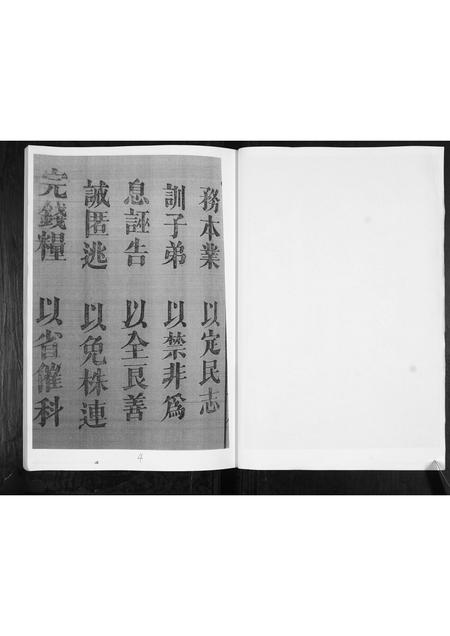 務本業 以定民志
訓子弟 以禁非爲
息誣告 以全良善
誡匿逃 以免株連
完錢糧 以省催科
4